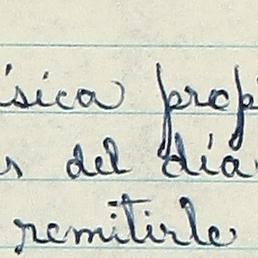 ísica prop
s del día
remitirle